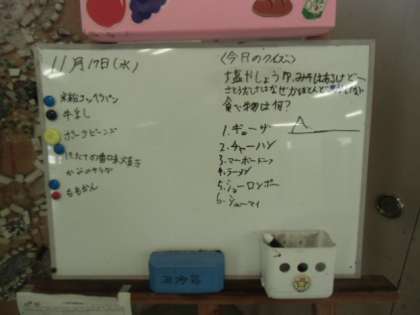 11月17日(水)
米粉コッペパン
牛乳
ポークビーンズ
かぶのサラダ
ももかん
〈今日のクイズ〉
塩やしょうゆ、みそはあるけど
食べ物は何?
1. ギョーザ
2. チャーハン
3. マーボードーフ
4. ラーメン
5. ショーロンポー
6. シューマイ